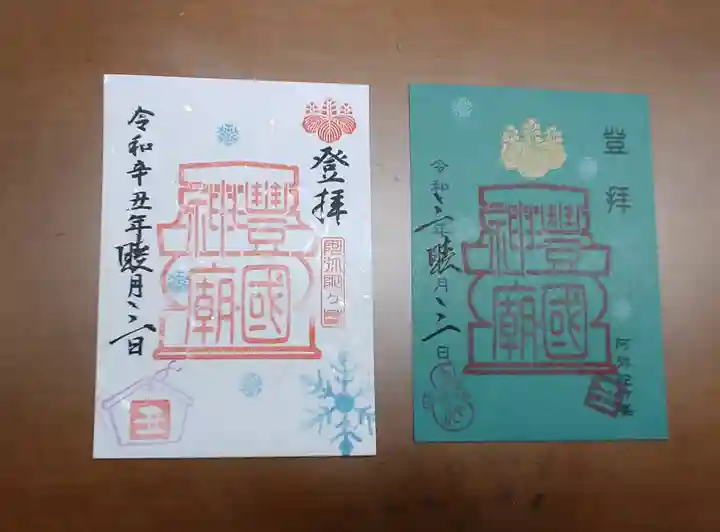 登拝
豊國
神廟
阿弥陀ヶ峰
令和辛丑年睦月三日
丑
登拝
豊國
神廟
阿弥陀ヶ峯
令和三年睦月三日